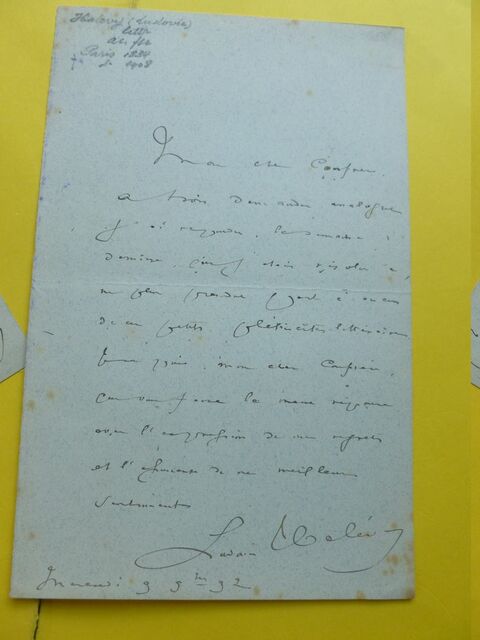 Halevy (Ludovic)
Paris 1834
1908
Mon cher Confrère,
à trois demandes analogues
j'ai répondu, la semaine
dernière, que j'étais résolu à
ne plus prendre part à aucun
de ces petits plébiscites littéraires.
mon cher Confrère,
que je vous fasse la même réponse
avec l'expression de mes regrets
et l'assurance de mes meilleurs
sentiments
Ludovic Halévy
Mercredi 9 9bre 92